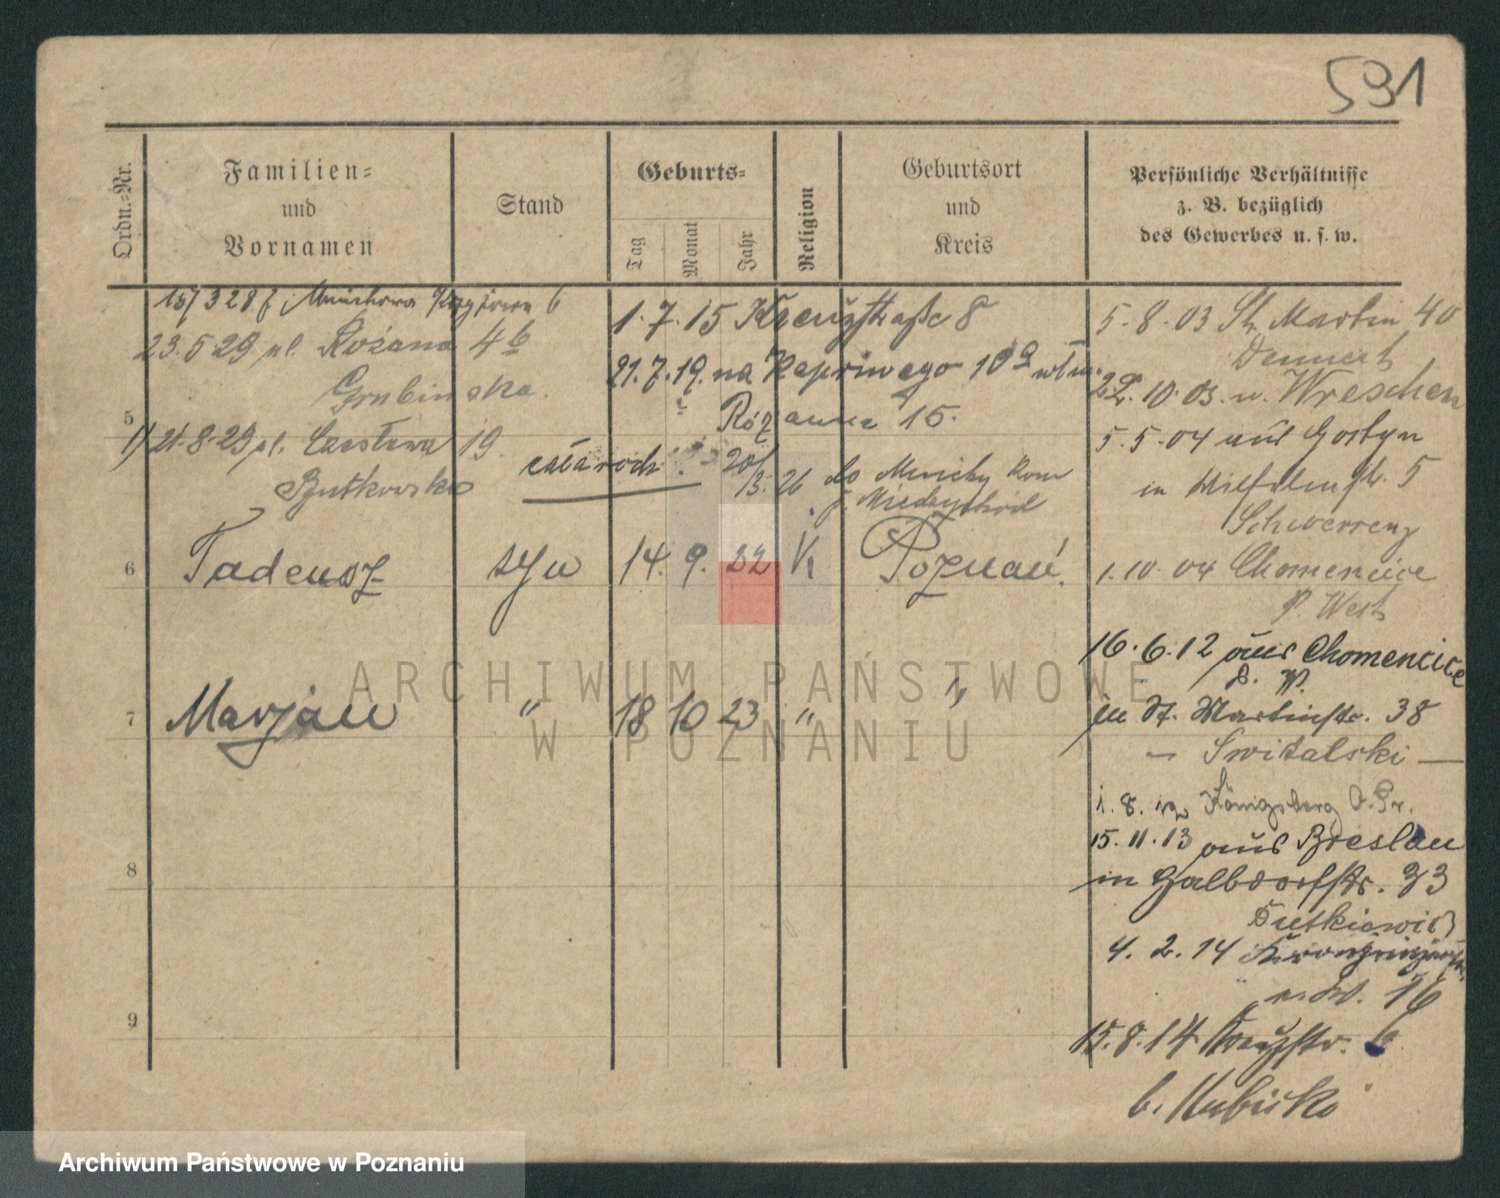 591
Ordn.-Nr.
Familien-
und
Vornamen
Stand
Geburts-
Tag
Monat
Jahr
Religion
Geburtsort
und
Kreis
Persönliche Verhältnisse
z. B. bezüglich
des Gewerbes u. s. w.
15/3 28
6
23.5 29 pl. Różana 4b
Grubinska.
5
21.8.29 pl. Czesława 19.
Rutkowska
1.7.15 Kreuzstraße 8
21.7.19. na Kapriwego 10a
Różanna 15.
cała rodz.
20/3. 26 do
Miedzychód
6
Tadeusz
syn
14. 9. 22
K
Poznań.
7
Marjan
"
18 10 23
"
"
8
9
5.8.03 St. Martin 40
22.10.03. n. Wreschen
5.5.04 aus Gostyn
in Wilhelmstr. 5
Schwersenz
1.10.04 Chomencice
P. West
16.6.12 aus Chomencice
in St. Martinstr. 38
— Switalski —
1.8. Königsberg O. Pr.
15.11.13 aus Breslau
in Halbdorfstr. 33
4.2.14 Kronprinzenstr.
16
15.8.14 Kreuzstr. 6
b. Kubicki
ARCHIWUM PAŃSTWOWE
W POZNANIU
Archiwum Państwowe w Poznaniu